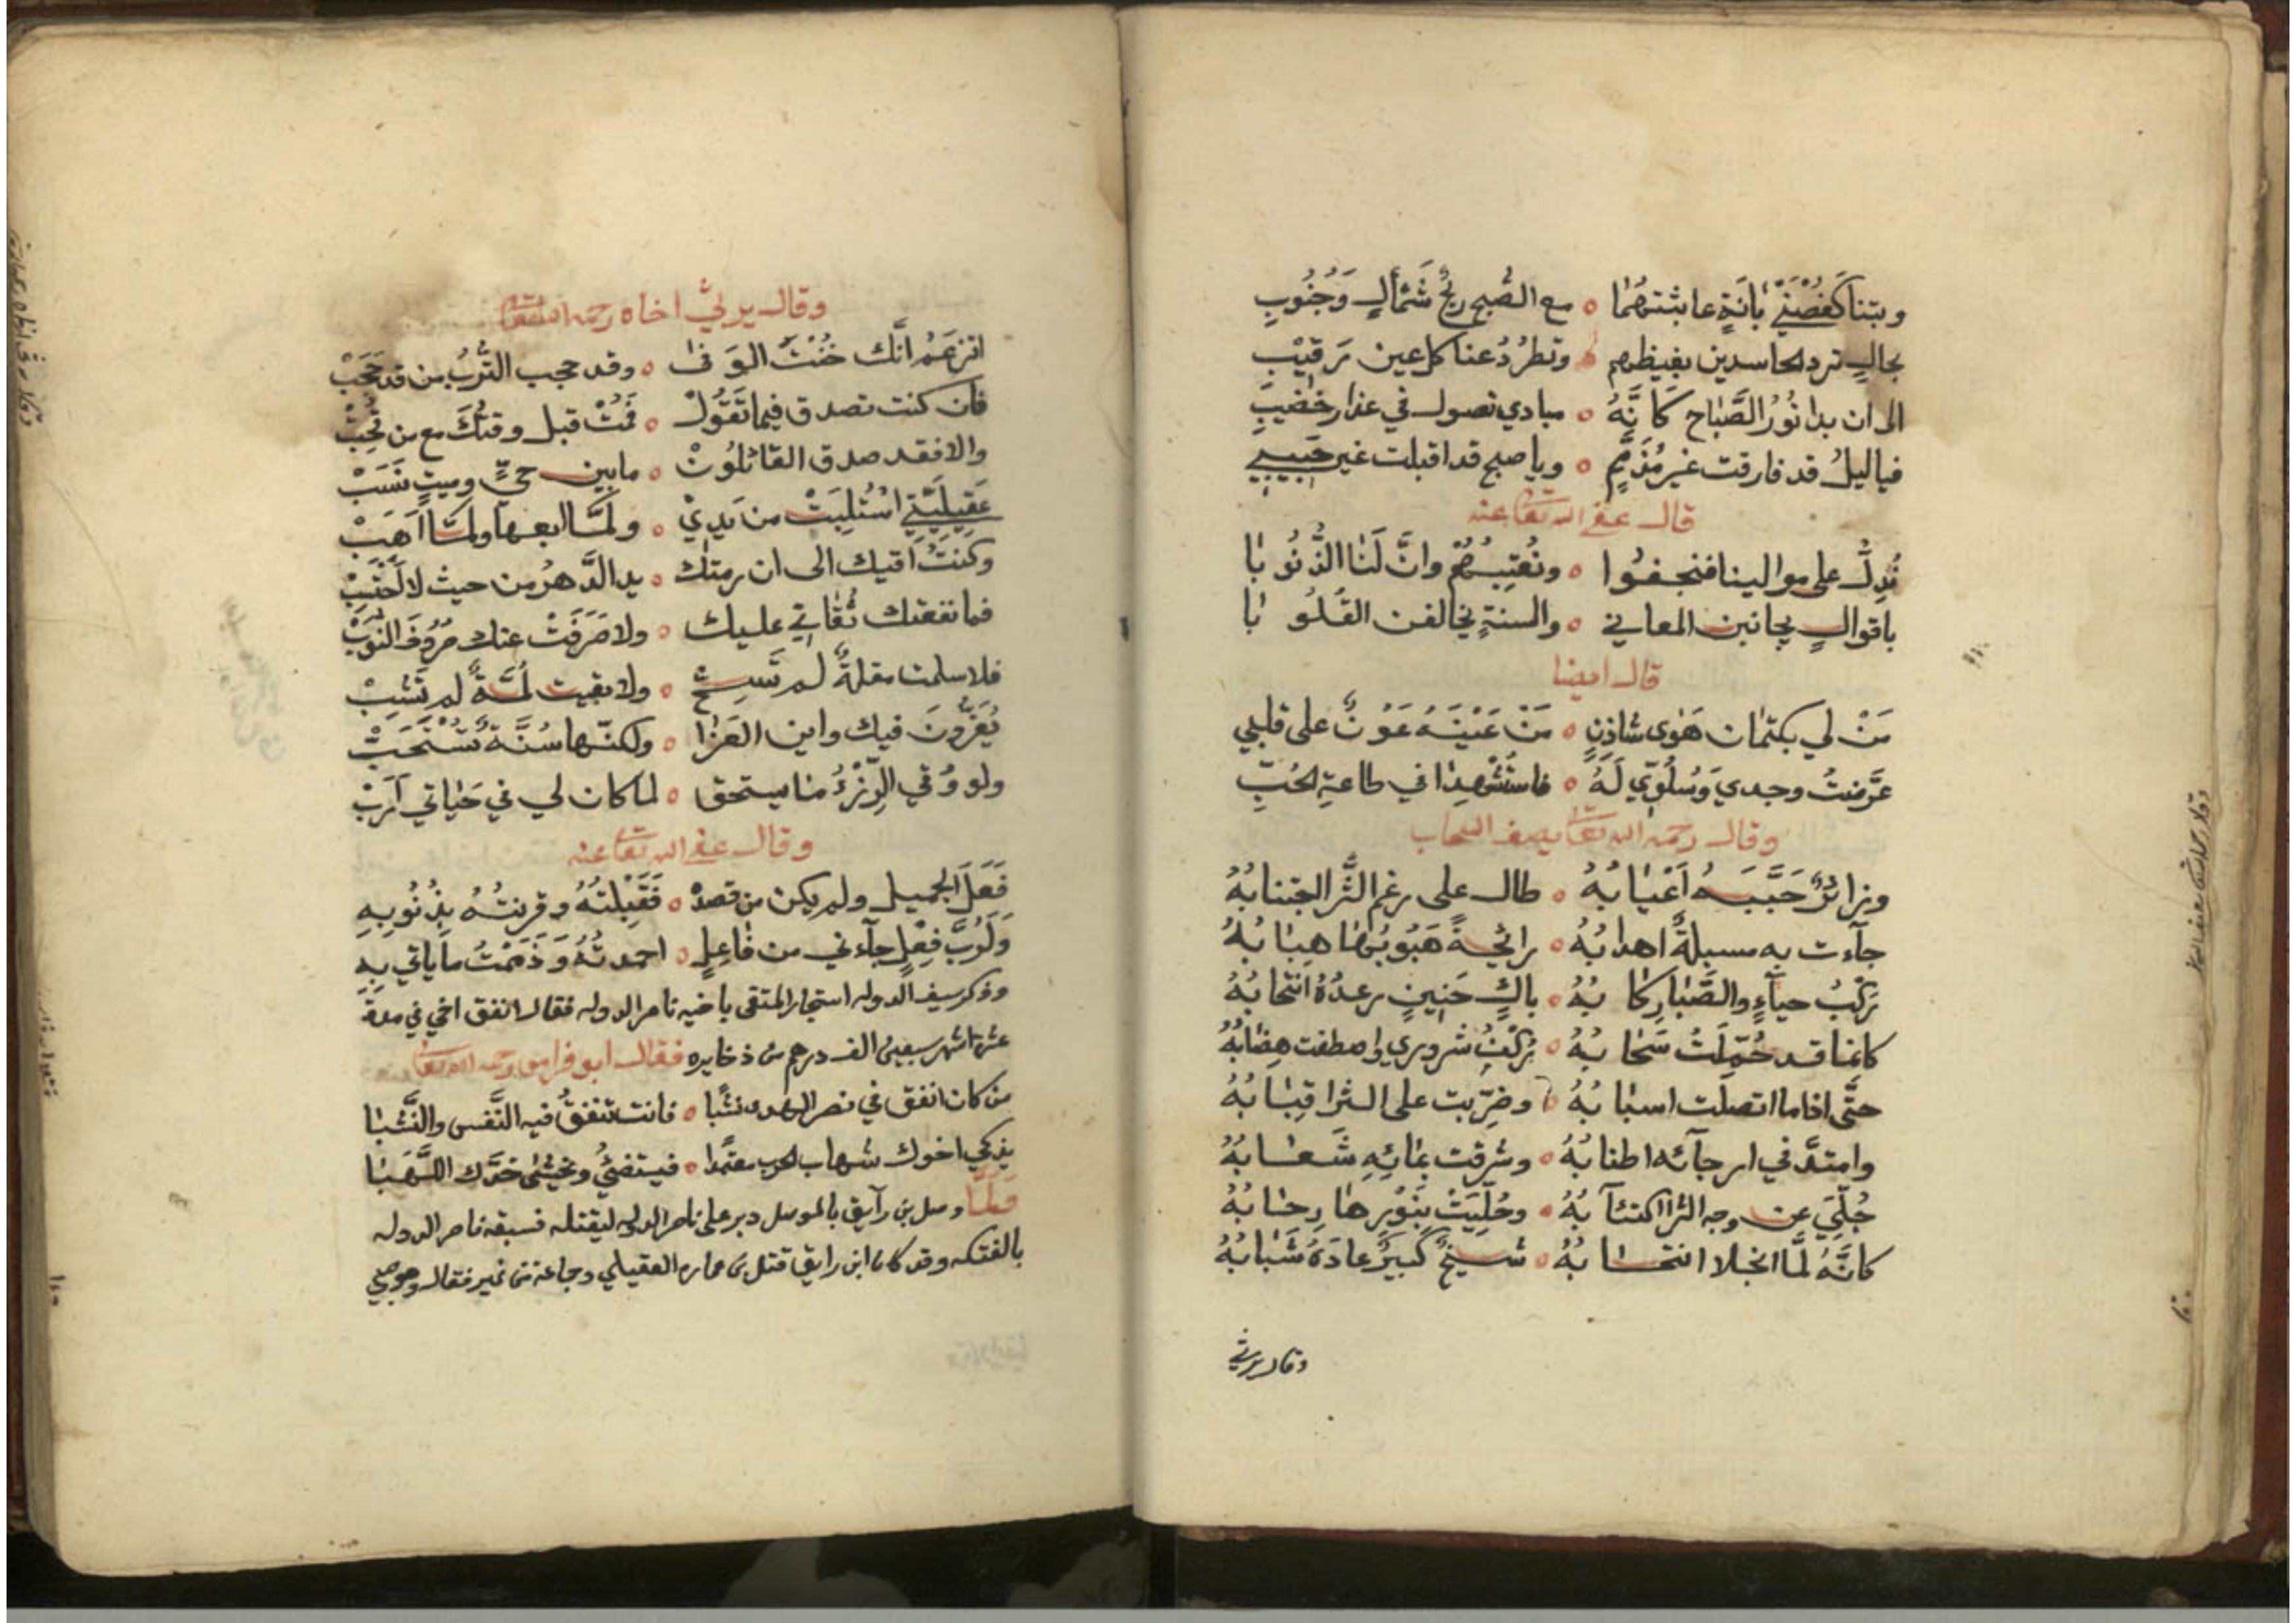 وبتنا كَغُصْنَيْ بانَةٍ عابثتهُما ∘ مع الصُّبح ريحُ شَمْألٍ وَجُنُوبِ
بحالٍ ترد الحاسدين بغيظهم ∘ وتطرُدُ عنا كل عين رَقيْب
الى ان بدا نُورُ الصَّباح كَأنَّهُ ∘ مبادي نصول في عذار خضيب
فيا ليلُ قد فارقت غير مُذَمَّمٍ ∘ ويا صبح قد اقبلت غير حَبيبي
قال عفى الله تعا عنه
نُدِلُّ على موالينا فنجفُوا ∘ ونُعتِبُهُمْ وانَّ لَنا الذُّنُوبا
باقوالٍ يجانبن المعاني ∘ والسنةٍ يخالفن القُلُوبا
قال ايضا
مَنْ لي بكتمان هَوى شاذِنٍ ∘ مَنْ عَيْنَهُ عَوْنٌ على قلبي
عَرَّضتُ وجدي وَسُلُوّي لَهُ ∘ فاستُشْهِدا في طاعةِ الحُبِّ
وقال رحمه الله تعا يصف السحاب
وزائرٌ حَبَّبَهُ اَغْيابُهُ ∘ طال على رغم الثَّرا اجتنابُهُ
جآءت به مسبلةً اهدابُهُ ∘ رائحةً هَبُوبُها هِبابُهُ
رَكْبُ حيآءٍ والصَّبا رِكابُهُ ∘ باكٍ حَنِينٍ رعدُهُ انتحابُهُ
كانما قد حُمِّلَتْ سَحابُهُ ∘ رُكْنُ شروري واصطفت هِضَابُهُ
حتَّى اذا ما اتصلت اسبابُهُ ∘ وضرّبت على الثرا قِبابُهُ
وامتدَّ في ارجآئه اطنابُهُ ∘ وشرقت بمائِهِ شَعابُهُ
جُلِّيَ عن وجه الثرا اكتئآبُهُ ∘ وحُلِّيَتْ بِنَوْرِها رِحابُهُ
كانَّهُ لَمَّا انجلا انتحابُهُ ∘ شيخٌ كَبيرٌ عادَهُ شَبابُهُ
وقال يرثي
وقال يرثيُ اخاه رحمه الله تعا
اتزعَمُ انَّك خُنْتَ الوفَى ∘ وقد حجب التُّرْبُ من قد حَجَبْ
فان كنت تصدق فيما تَقُولْ ∘ فَمُتْ قبل وقتكَ مع من تُحِبْ
والا فقد صدق القائلُونْ ∘ ما بين حيٍّ وميتٍ نَسَبْ
عَقِيلَتِي اسْتُلِبَتْ من يَدِيْ ∘ ولَمَّا ابعها ولَمَّا اَهَبْ
وكنتُ اقيك الى ان رمتك ∘ يد الدَّهرُ من حيث لا اَحْتَسِبْ
فما نفعتك تُقاتي عليك ∘ ولا صَرَفَتْ عنك صُرُوفَ النُّوَبْ
فلا سلمت مقلةٌ لم تَسِحْ ∘ ولا بقيت لُمَّةٌ لم تَشِبْ
يُعَزُّونَ فيك واين العَزا ∘ ولكنّها سُنَّةٌ تُسْتَحَبْ
ولو وُقي الرُّزْءُ منا يستحق ∘ لما كان لي في حَياتي اَرَبْ
وقال عفى الله تعا عنه
فَعَلَ الجميل ولم يكن من قصدْ ∘ فَقَبِلْتُهُ وقرنتُهُ بِذُنُوبِهِ
وَلَرُبَّ فِعْلٍ جآءني من فاعِلٍ ∘ احمدتُهُ وَذَمَمْتُ ما ياتي بِهِ
وذكر سيف الدوله استجار المتقى باخيه ناصر الدوله فقال انفق اخي في مدة
عشرة اشهر سبعين الف درهم من ذخايره فقال ابو فراس رحمه الله تعا
من كان انفق في نصر الهدى نشَبا ∘ فانت تنفقُ فيه النَّفس والنَّشَبا
يذكي اخوك شهاب الحرب معتمدا ∘ فيستضئُ ويخيشى خدَّك اللَّهَبا
فلَمَّا وصل بن رآيق بالموصل دبر على ناصر الدوله ليقتله فسبقه ناصر الدوله
بالفتكه وقد كان ابن رايق قتل بن عماره العقيلي وجماعة من نمير فقال